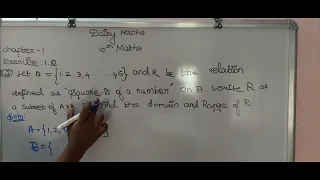 Daisy Maths
Chapter-1
10th Maths
Exercise 1.2
Let A = {1, 2, 3, 4 ...... 45} and R be the relation
defined as "square of a number" on A. Write R as
a subset of A× the domain and Range of R.
Soln:
A = {1, 2, 3
B = {